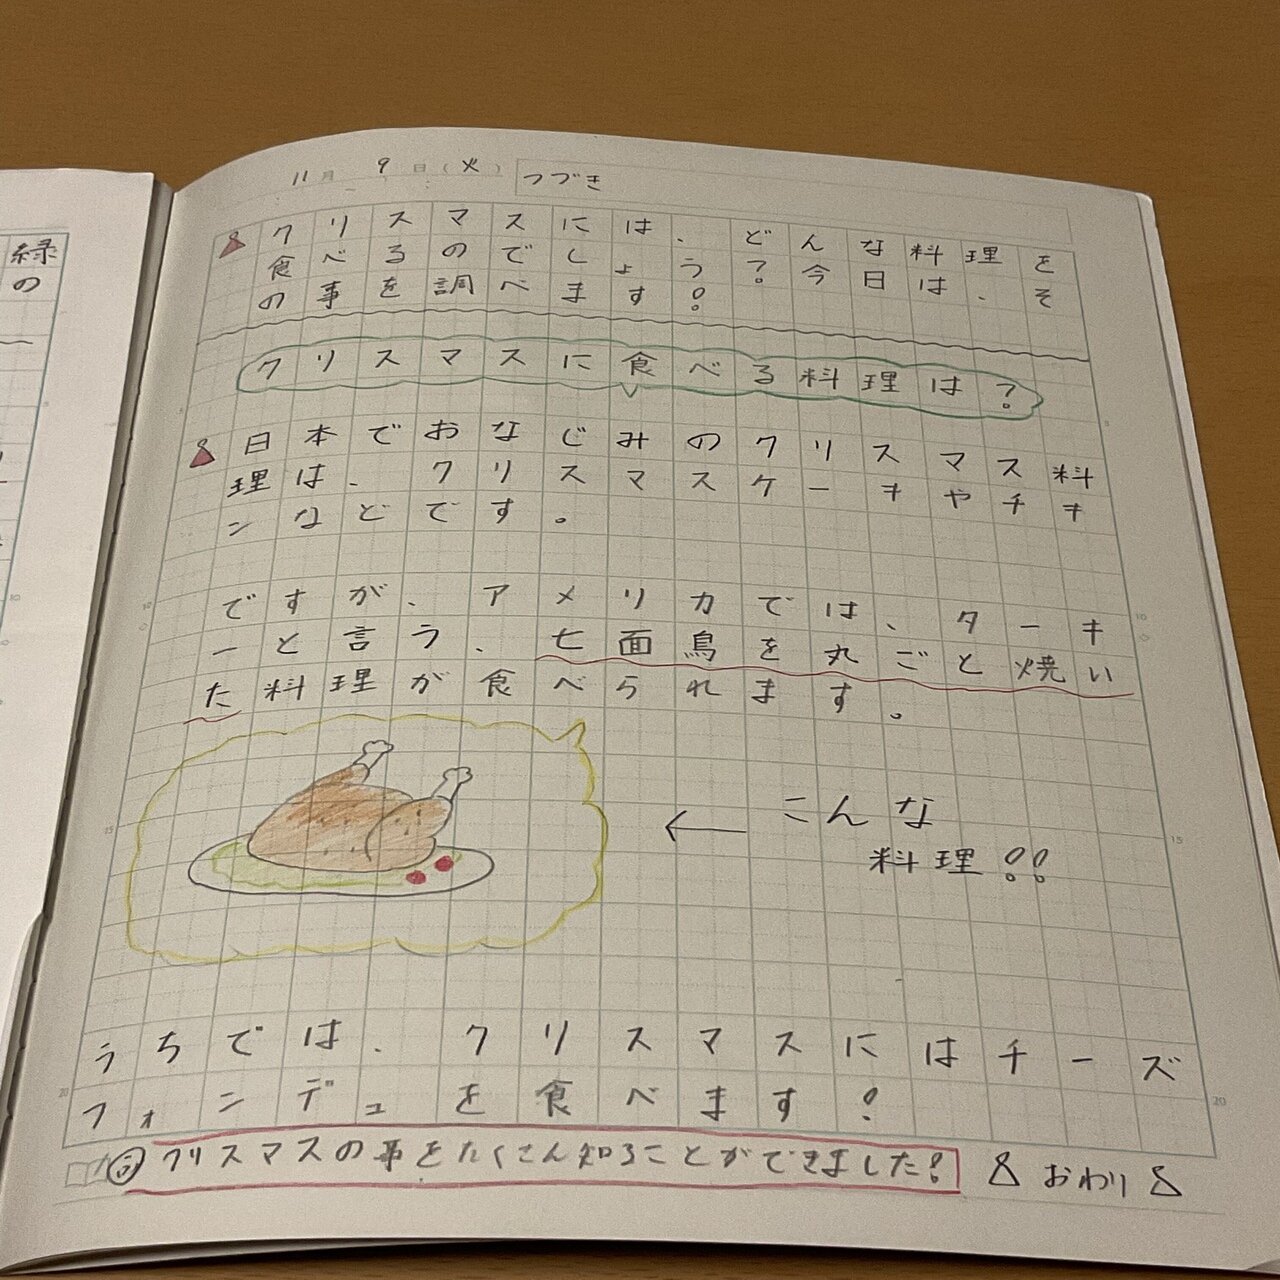 緑
の
11月 9日(火) つづき
クリスマスには、どんな料理を
食べるのでしょう?今日は、そ
の事を調べます!
クリスマスに食べる料理は?
日本でおなじみのクリスマス料
理は、クリスマスケーキやチキ
ンなどです。
ですが、アメリカでは、ターキ
ーと言う、七面鳥を丸ごと焼い
た料理が食べられます。
←こんな
料理!!
うちでは、クリスマスにはチーズ
フォンデュを食べます!
クリスマスの事をたくさん知ることができました! おわり